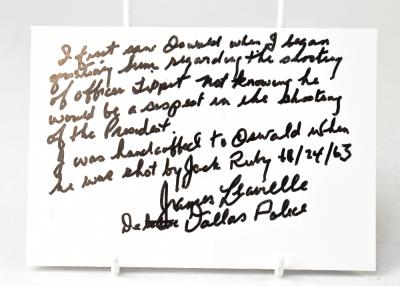 I first saw Oswald when I began
questiong him regarding the shooting
of officer Tippit not knowing he
would be a suspect in the shooting
of the President.
I was handcuffed to Oswald when
he was shot by Jack Ruby 11/24/63
James Leavelle
Dallas Police